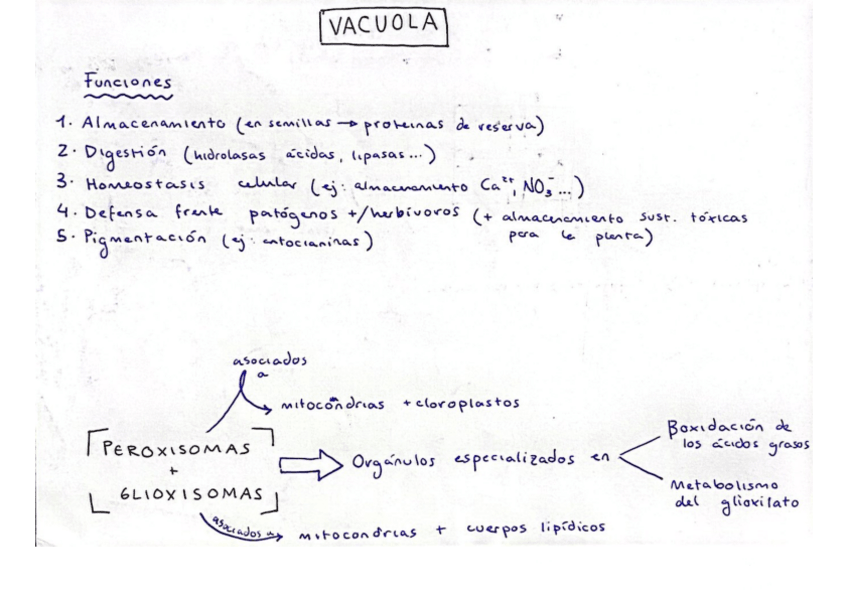 VACUOLA
Funciones
1. Almacenamiento (en semillas → proteínas de reserva)
2. Digestión (hidrolasas ácidas, lipasas...)
3. Homeostasis celular (ej: almacenamiento Ca²⁺, NO₃⁻...)
4. Defensa frente patógenos +/herbívoros (+ almacenamiento sust. tóxicas
para la planta)
5. Pigmentación (ej: antocianinas)
asociados
a
mitocondrias + cloroplastos
PEROXISOMAS
+
GLIOXISOMAS
Orgánulos especializados en
Boxidación de
los ácidos grasos
Metabolismo
del glioxilato
asociados a
mitocondrias + cuerpos lipídicos